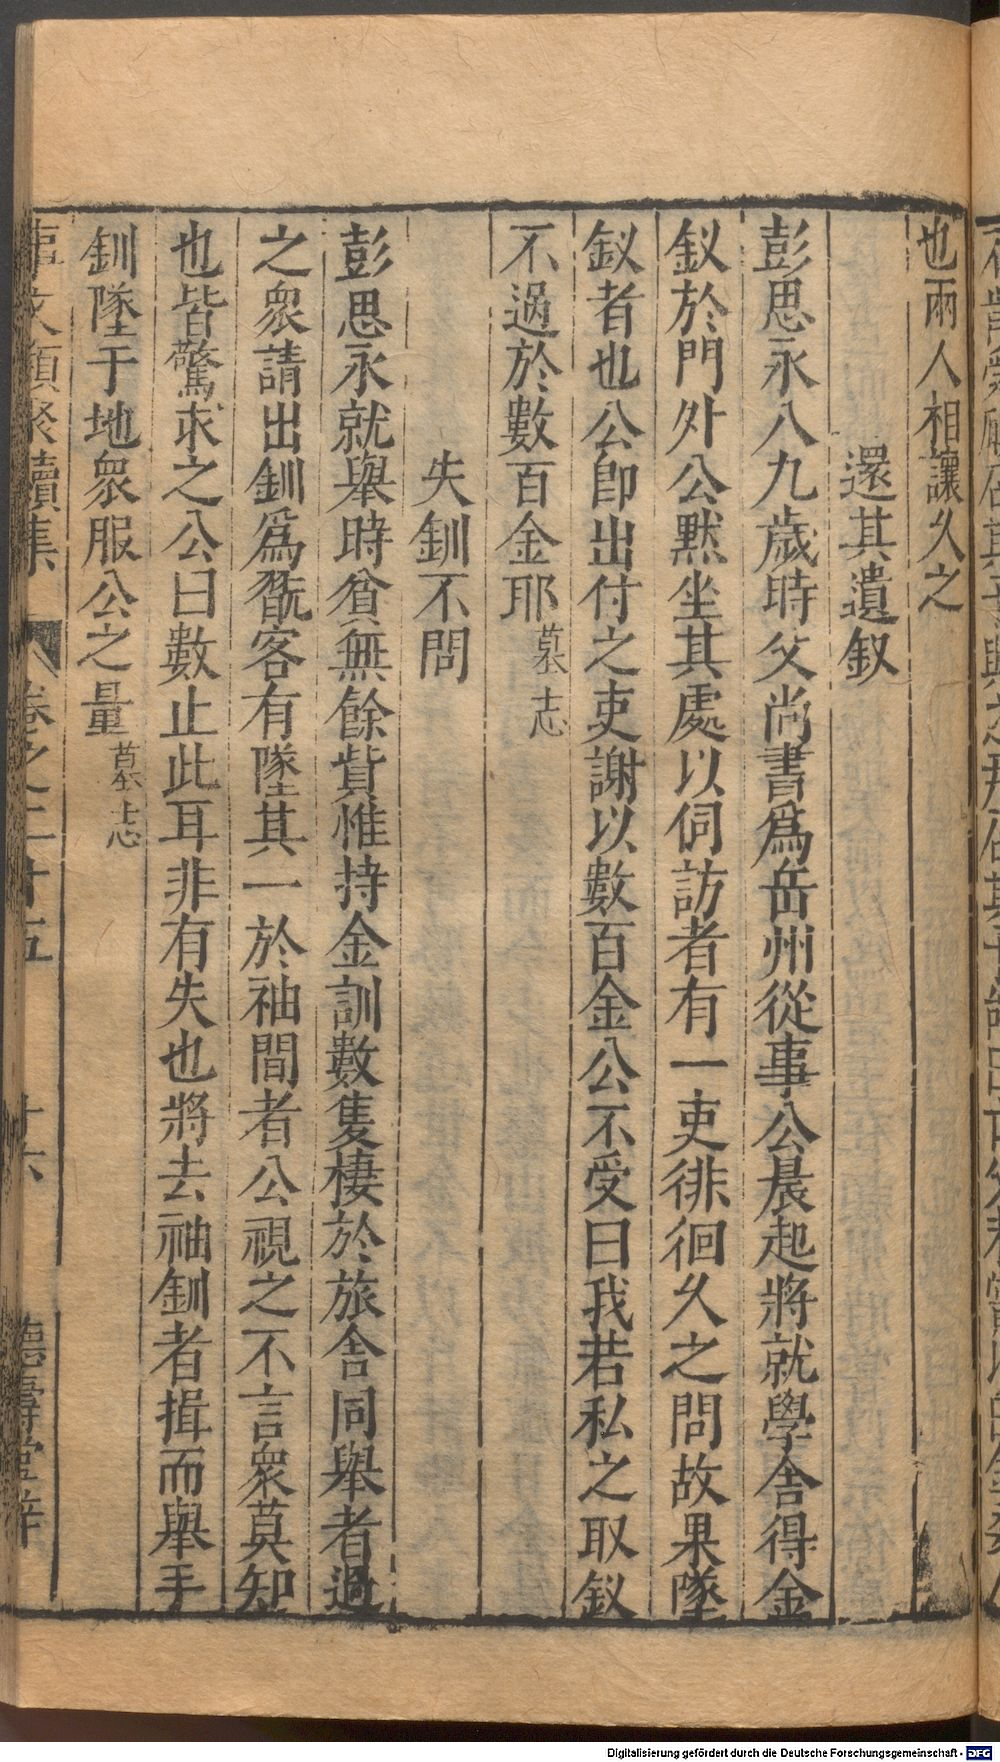 也兩人相讓久之
還其遺釵
彭思永八九歲時父尚書爲岳州從事公晨起將就學舍得金
釵於門外公黙坐其處以伺訪者有一吏徘徊久之問故果墜
釵者也公卽出付之吏謝以數百金公不受曰我若私之取釵
不過於數百金耶墓志
失釧不問
彭思永就舉時貧無餘貲惟持金訓數隻棲於旅舍同舉者過
之衆請出釧爲翫客有墜其一於袖間者公視之不言衆莫知
也皆驚求之公曰數止此耳非有失也將去袖釧者揖而舉手
釧墜于地衆服公之量墓志
事文類聚續集 卷之二十五 十六 德壽堂梓
Digitalisierung gefördert durch die Deutsche Forschungsgemeinschaft - DFG